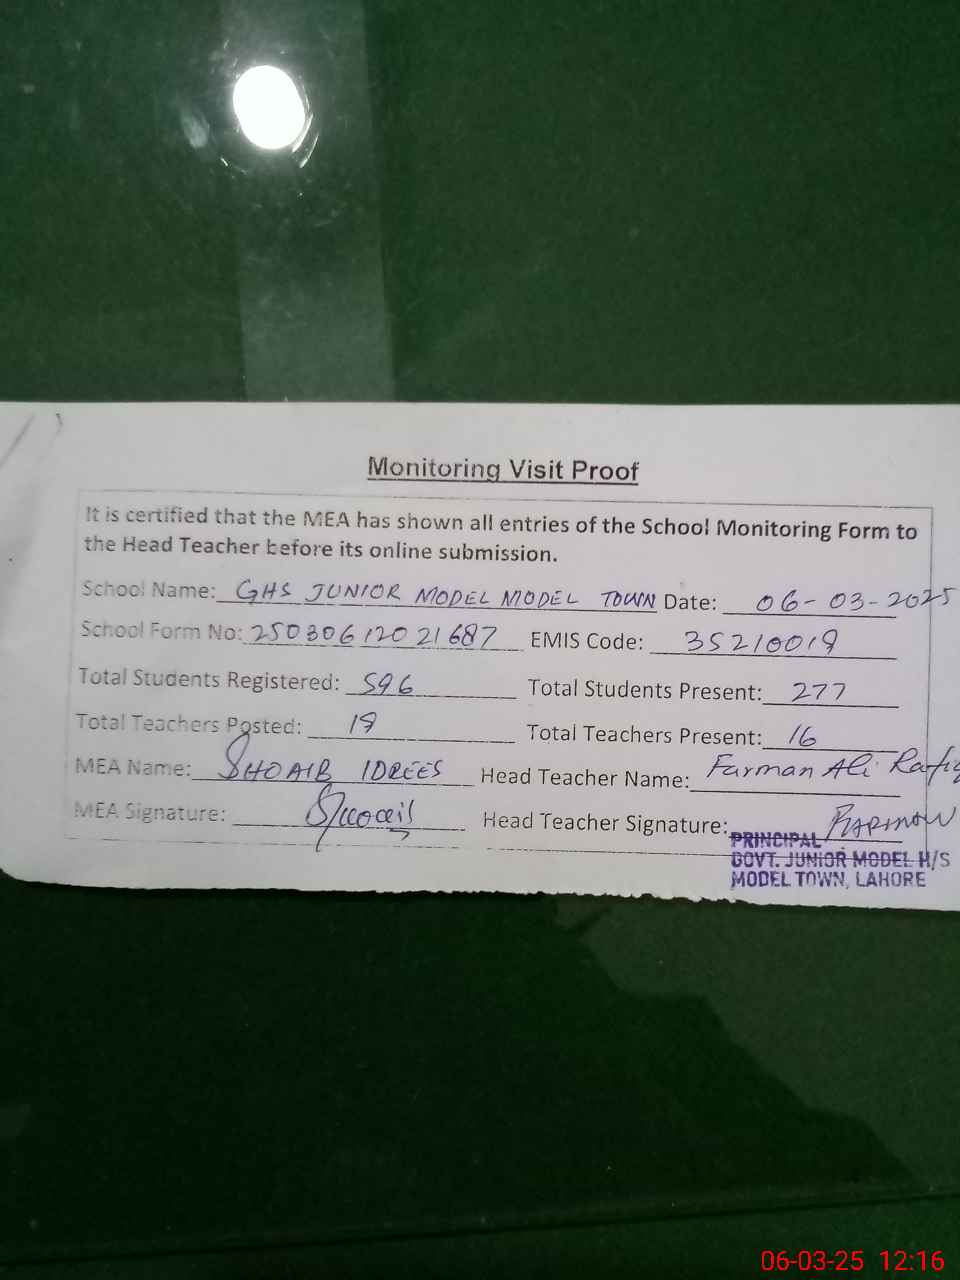 Monitoring Visit Proof
It is certified that the MEA has shown all entries of the School Monitoring Form to
the Head Teacher before its online submission.
School Name: GHS JUNIOR MODEL MODEL TOWN Date: 06-03-2025
School Form No: 25030612021687 EMIS Code: 35210019
Total Students Registered: 596 Total Students Present: 277
Total Teachers Posted: 19 Total Teachers Present: 16
MEA Name: SHOAIB IDREES Head Teacher Name: Farman Ali Rafiq
MEA Signature: Head Teacher Signature:
PRINCIPAL
GOVT. JUNIOR MODEL H/S
MODEL TOWN, LAHORE
06-03-25 12:16